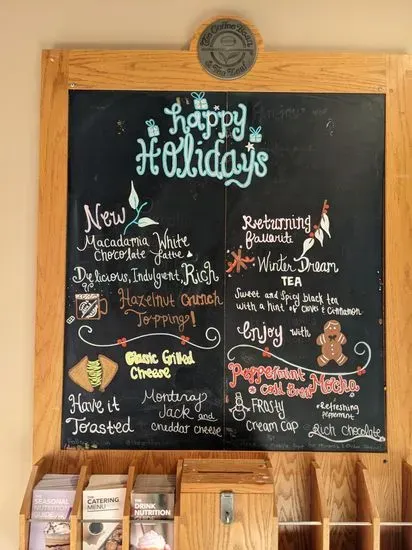 The Coffee Bean
& Tea Leaf
happy
Holidays
New
Macadamia White
Chocolate Latte
Delicious, Indulgent, Rich
Hazelnut Crunch
Topping!
Classic Grilled
Cheese
Have it
Toasted
Monteray
Jack and
cheddar cheese
Returning
favorite
Winter Dream
TEA
Sweet and Spicy black tea
with a hint of cloves & cinnamon
Enjoy with
Peppermint
Cold Brew Mocha
Frosty
cream cap
Refreshing
peppermint
Rich chocolate
THE
SEASONAL
NUTRITION
GUIDE
THE
CATERING
MENU
THE
DRINK
NUTRITION